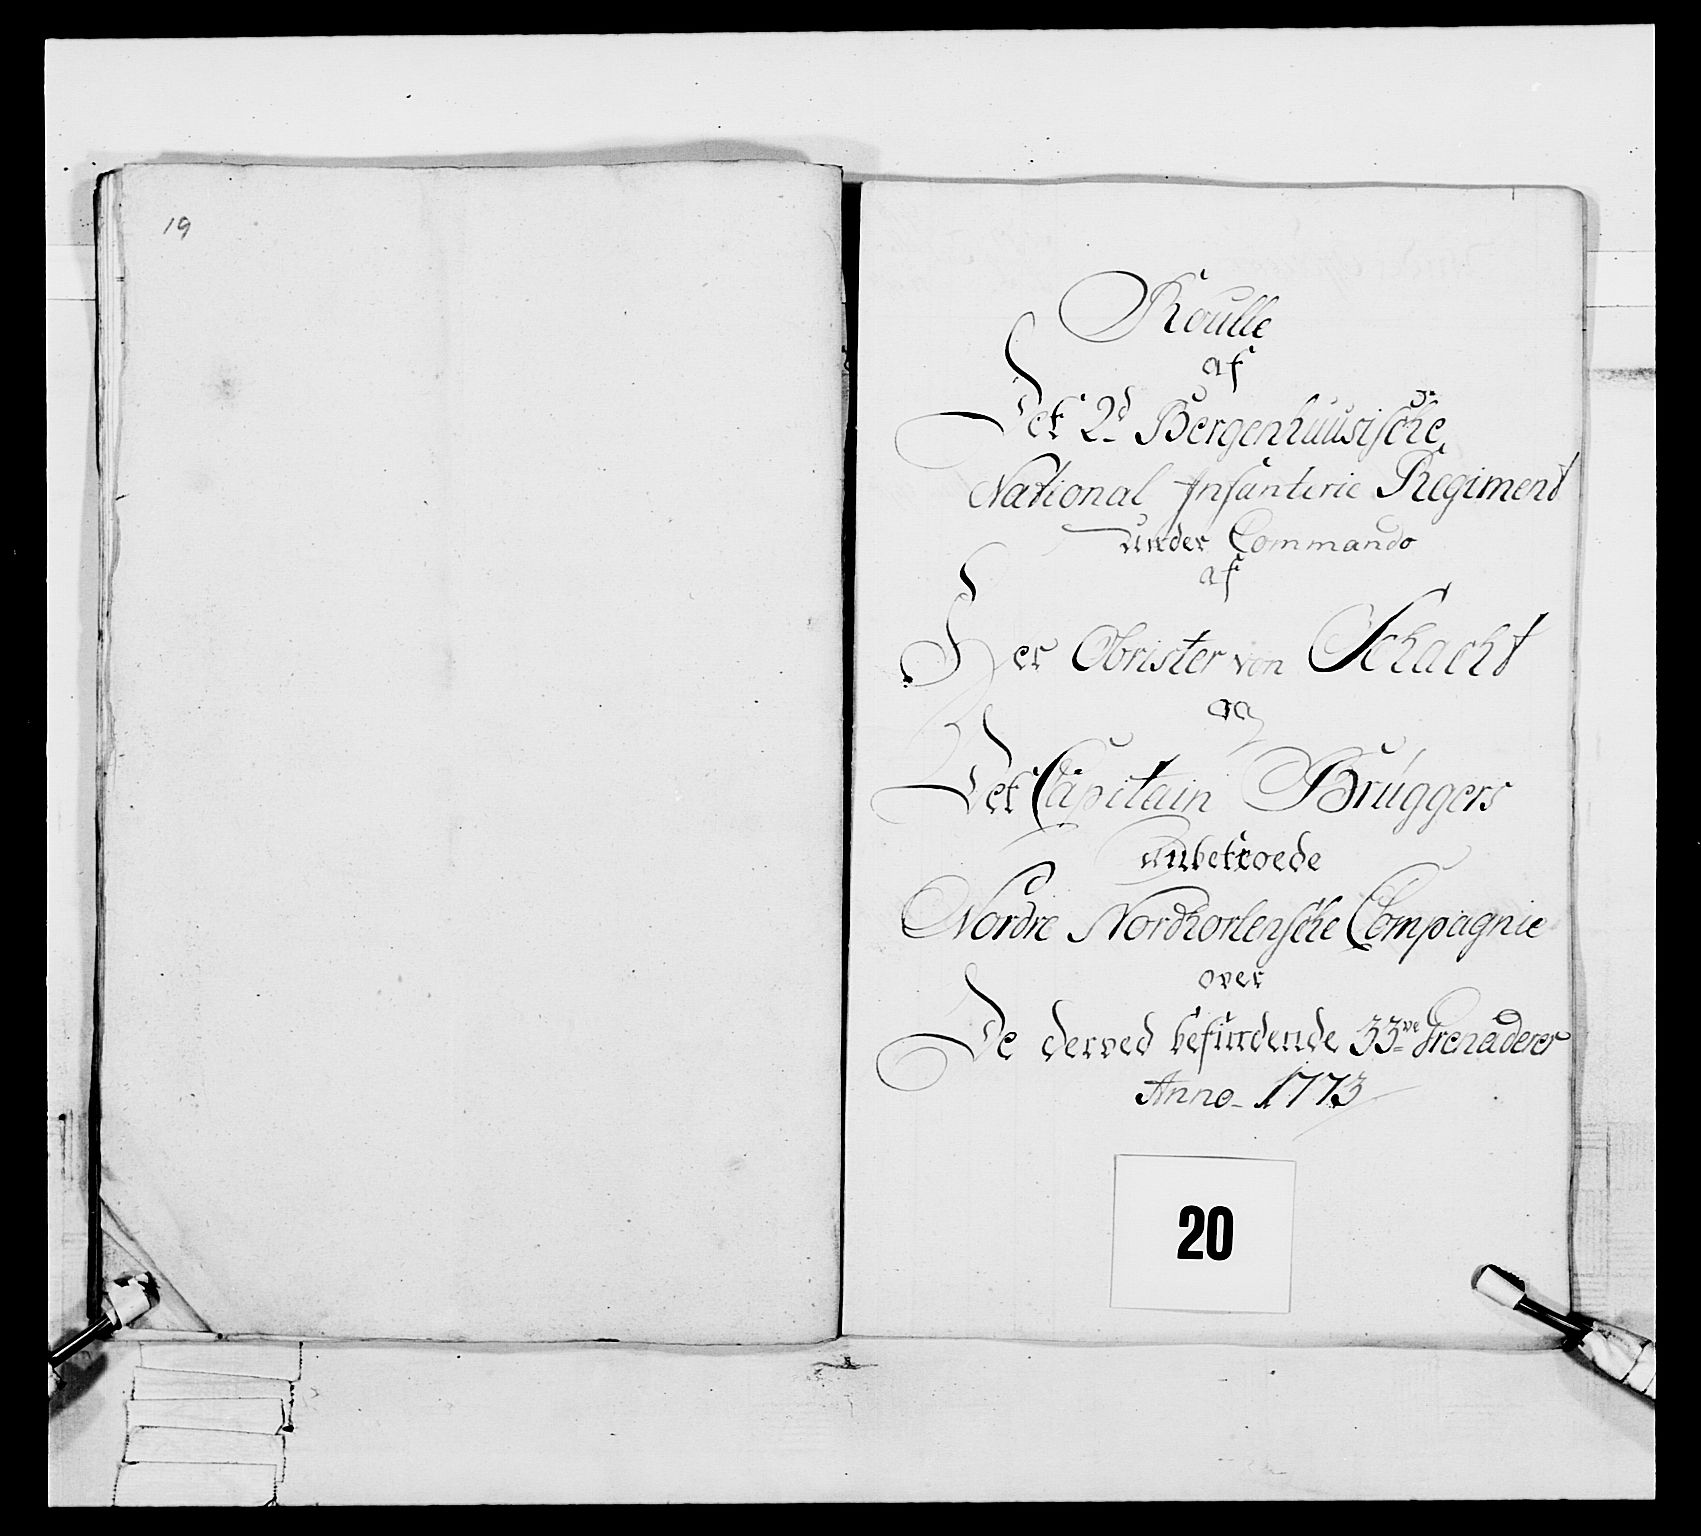 19
Roulle
af
Det 2d Bergenhuusische
National Infanterie Regiment
under Commando
af
Her Obrister von Schacht
og
Det Capitain Brúggers
anbetroede
Nordre Nordhorlensche Compagnie
over
De derved befindende 33ve Grenaderer
Anno 1773
20